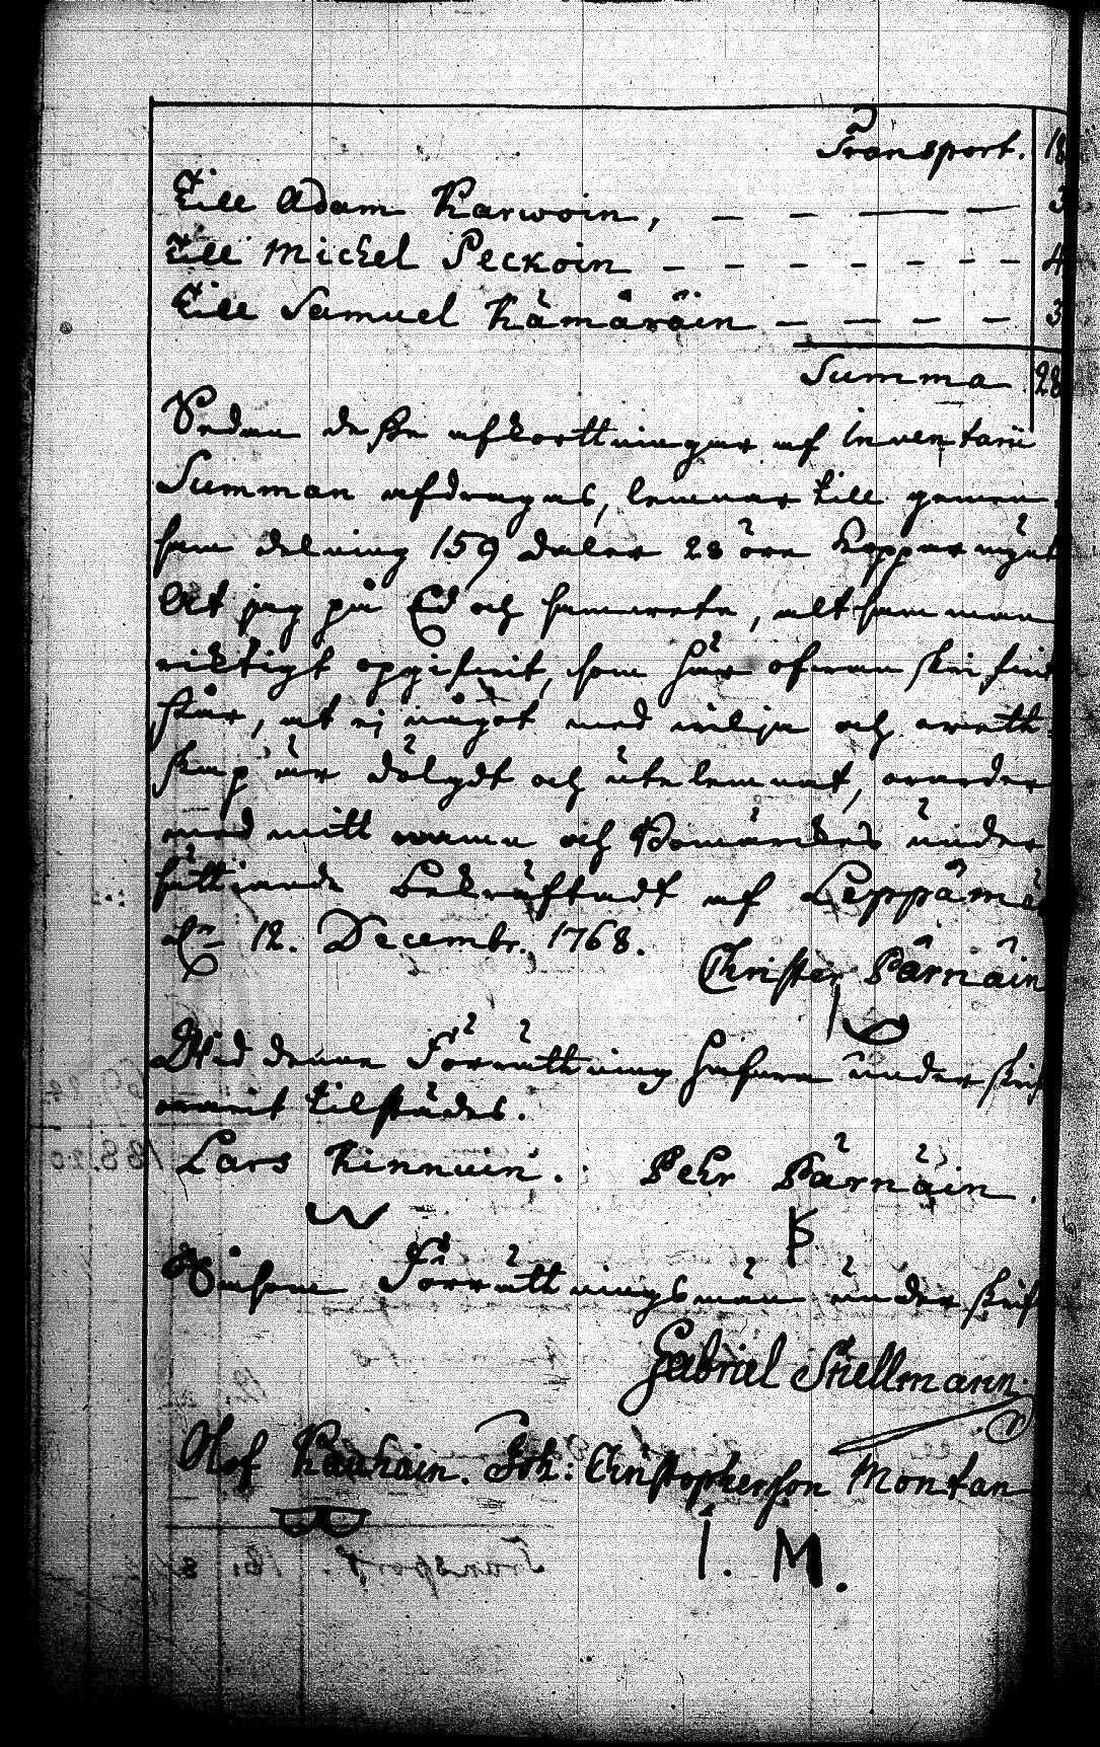 Transport. 18
Till Adam Karwoin, — — — — 3
Till Michel Peckoin — — — — — — — 4
Till Samuel Kämäräin — — — — 3
Summa 28
Sedan desse afkorttningar af inventarii
Summan afdragas, lemnar till gemen-
sam delning 159 daler 28 öre Koppar mynt
At jag på Ed och samwete, alt samman
riktigt oppgifwit, som här ofwan skrifwit
står, at ej något med wilja och wett-
skap är döldt och utelemnat, warder
med mitt namn och Bomärkes under-
sättiande bekräftadt af Leppämä
d. 12. Decembr. 1768.
Christer Pärnäin
Wid denna Förrättning hafwa under skrif
warit tilstädes.
Lars Kinnuin. Pehr Pärnäin.
Förrättningsmän under skrif
Gabriel Stellmann
Olof Kauhain. Joh: Christophersson Montan
I. M.
Transport. 161. 8